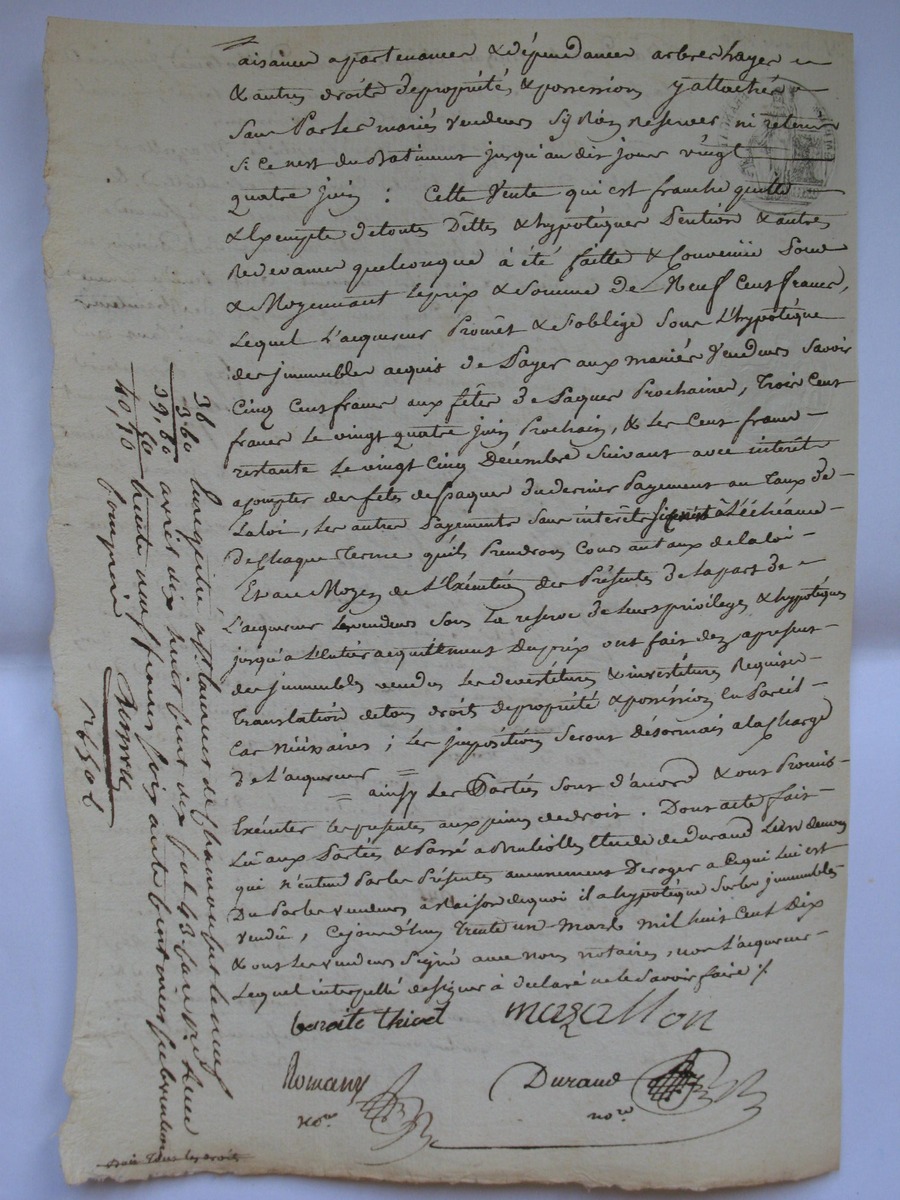 aisances apartenances & dépendances arbres hayes et
& autres droits de propriété, & possession y attachés
sans Par les mariés vendeurs s'y Rien Reserver ni retenir
si ce nest du Batiment jusqu'au dit jour vingt
quatre juin : Cette Vente qui est franche quitte
& Exempte de toutes Dêttes & hypotéques Pention & autres
Redevances quelconque à été faitte & Convenüe Sous
& Moyennant le prix & Somme de Neuf Cent francs,
Lequel L'acquereur Promêt & S'oblige Sous L'hypotéque
des immeubles acquis de Payer aux mariés Vendeurs Savoir
Cinq Cent francs aux fêtes de Paques Prochaines, Trois Cent
francs le vingt quatre juin Prochain, & les Cent francs
restants le vingt Cinq Décembre Suivant avec intérêt
a compter des fêtes de paques du dernier Payement au Taux de
La loi, les autres Payements Sans intérêts à L'échéance
de Chaque terme qu'ils Prendront Cours au taux de la loi
Et au Moyen de L'Exécution des Présentes de la part de
L'acquereur les vendeurs Sous La reserve de leurs privileges & hypotéques
jusqu'a L'entier acquittement du prix ont fait dez apresent
des immeubles vendus les devestitures & investitures Requises
Translation de tous droits de propriété & possession En Pareil
Cas Nécessaires ; les impositions Seront désormais a la charge
de L'acquereur = ainsy les Parties Sont d'accord & ont Promis
Exécuter les presentes aux peines de droit. Dont acte fait
Lû aux Parties & Passé a Etude de Durand L'un de nous
qui n'entend Par les Présentes aucunement Deroger a Ce qui Lui est
Du Par les vendeurs a Raison de quoi il a hypotéque Sur les immeubles
Vendûs, Cejourd'huy Trente un Mars Mil huit Cent Dix
& ont les vendeurs Signé avec nous notaires, non L'acquereur
Lequel interpellé de Signer à déclaré ne le Savoir faire /.
benoite thivet mazallon
Romany Durand
nore nore
36
3.60
39,60
80
40,40
avril dix huit cent dix fol 43
trente neuf francs soixante centimes
compris